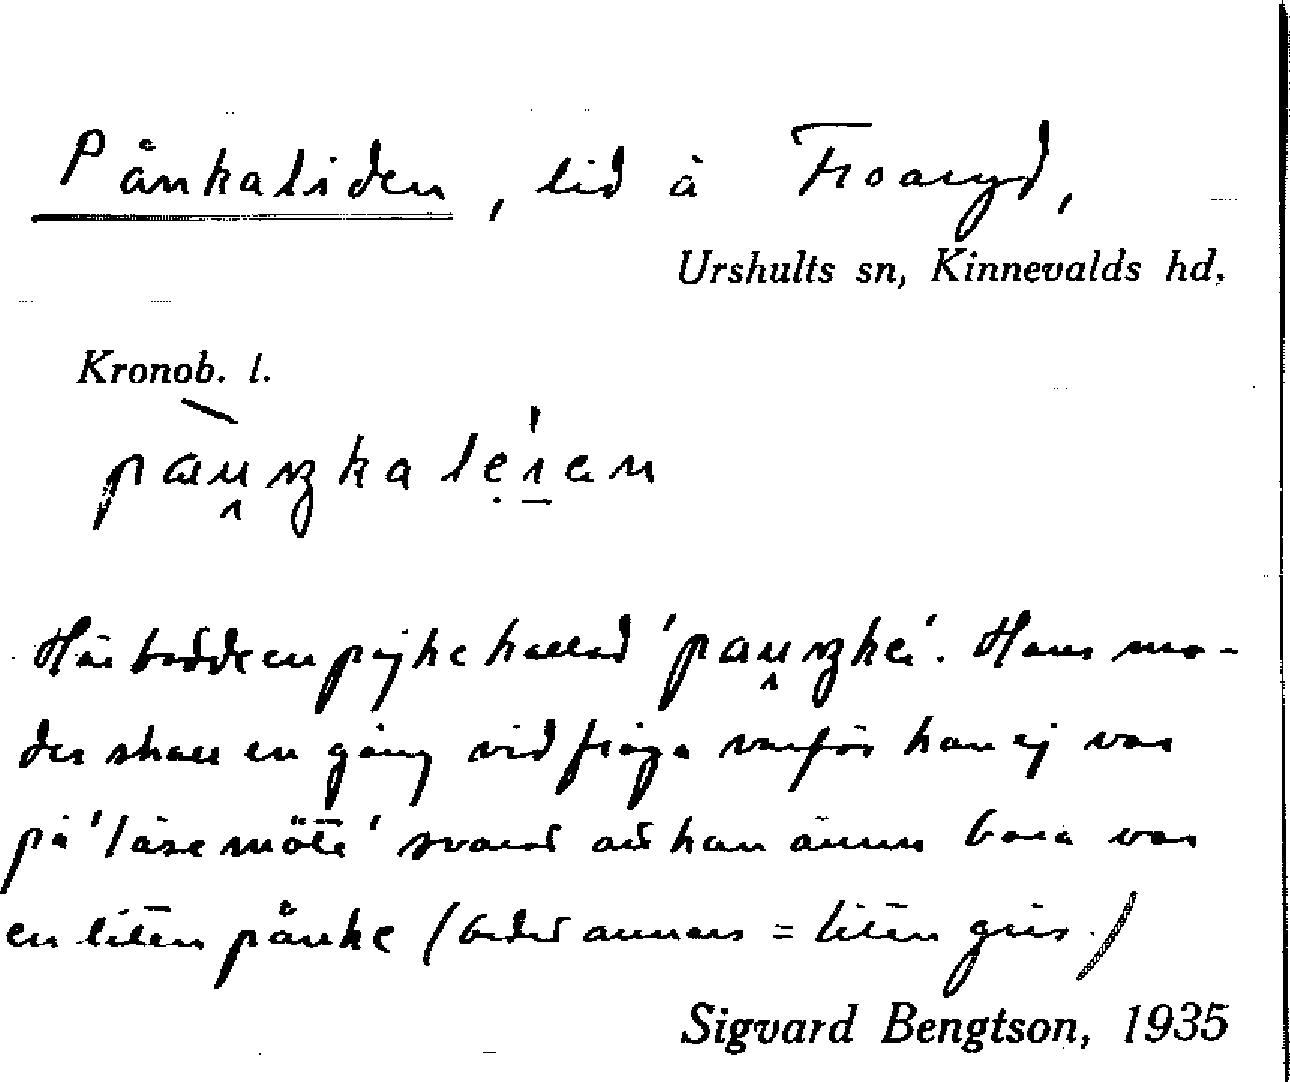 Pånkaliden, lid å Froaryd,
Urshults sn, Kinnevalds hd,
Kronob. l.
Här bodde en pojke kallad 'pauŋke'. Hans mo-
der skall en gång vid fråga varför han ej var
på 'läsemöte' svarat att han ännu bara var
en liten pånke (betyder annars = liten gris.)
Sigvard Bengtson, 1935